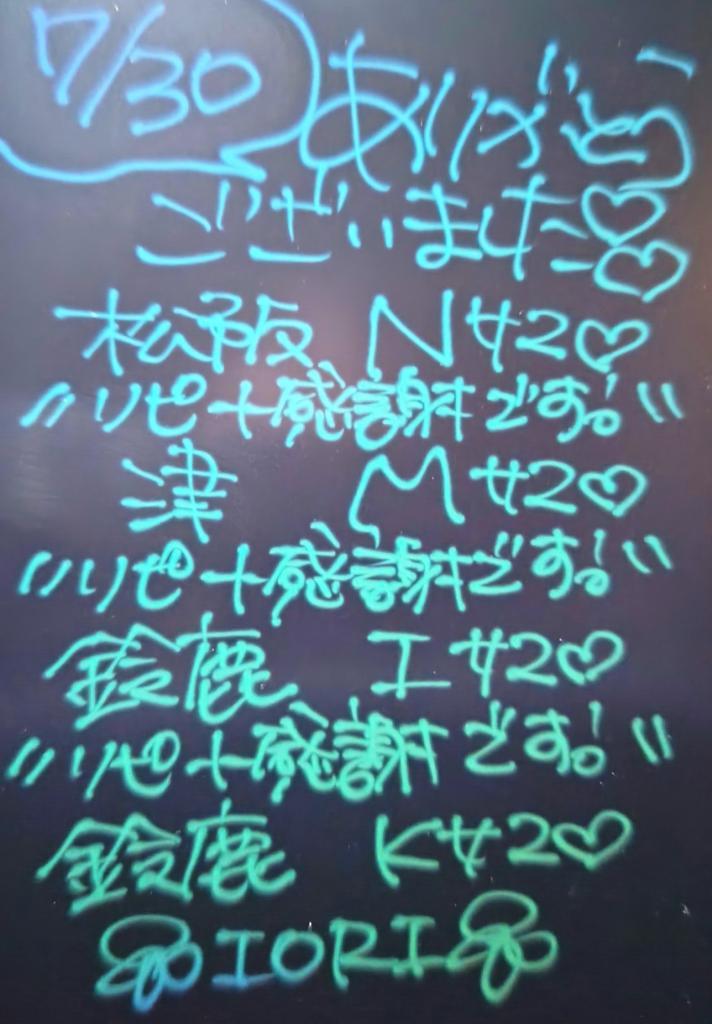 7/30 ありがとう
ございました♡♡
松阪 Nサン♡
"リピ十感謝です!"
津 Mサン♡
"リピ十感謝です!"
鈴鹿 Iサン♡
"リピ十感謝です!"
鈴鹿 Kサン♡
IORI